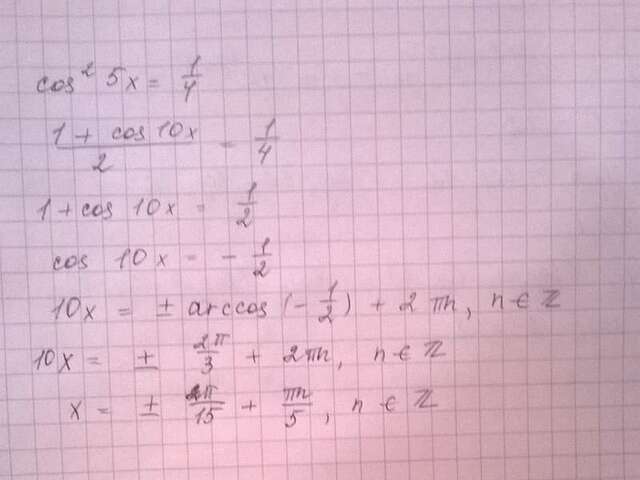 cos² 5x = 1/4
(1 + cos 10x)/2 = 1/4
1 + cos 10x = 1/2
cos 10x = - 1/2
10x = ± arccos (- 1/2) + 2πn, n ∈ ℤ
10x = ± 2π/3 + 2πn, n ∈ ℤ
x = ± π/15 + πn/5, n ∈ ℤ